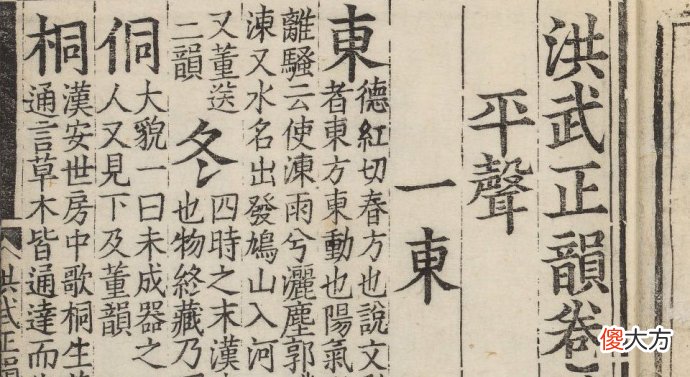 洪武正韻卷
平聲
一東
東
德紅切春方也說文
者東方東動也陽氣
離騷云使涷雨兮灑塵郭
涷又水名出發鳩山入河
又董送
二韻
冬
四時之末漢
也物終藏乃
侗
大貌一曰未成器之
人又見下及董韻
桐
漢安世房中歌桐生
通言草木皆通達而
洪武正
傻大方